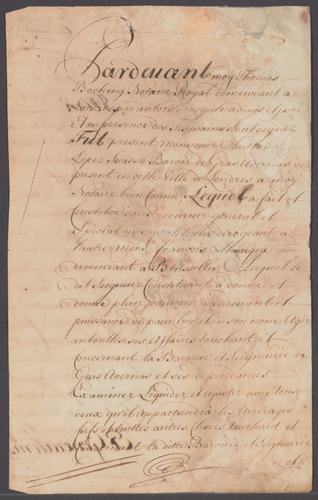 Pardevant moy Thomas
Bocking Notaire Royal demeurant a
par autorité royale admis et juré
Et en presence des Temoins soubsignez
Fut present Monsieur Anthony
Lopez Suasso Baron de Gras Avernas de
present en cette Ville de Londres a moy
Notaire bien Connu, Lequel a fait et
Constitué son Procureur general et
Special une qualité ne derogeant a
l'autre Monsr. François
demeurant a Bruxelles Auquel le
dit Seigneur Constituant a donné et
donne plein pouvoir mandement et
puissance de pour luy et en son nom Agir
en toutes ses Affaires touchant et
concernant la Baronie et Seigneurie
de Gras Avernas et ses dependances
Examiner Liquider et ajuster avec tous
ceux qu'il Appartiendra les Arrérages
et toutes autres Choses touchant et
la ditte Baronie et Seigneurie